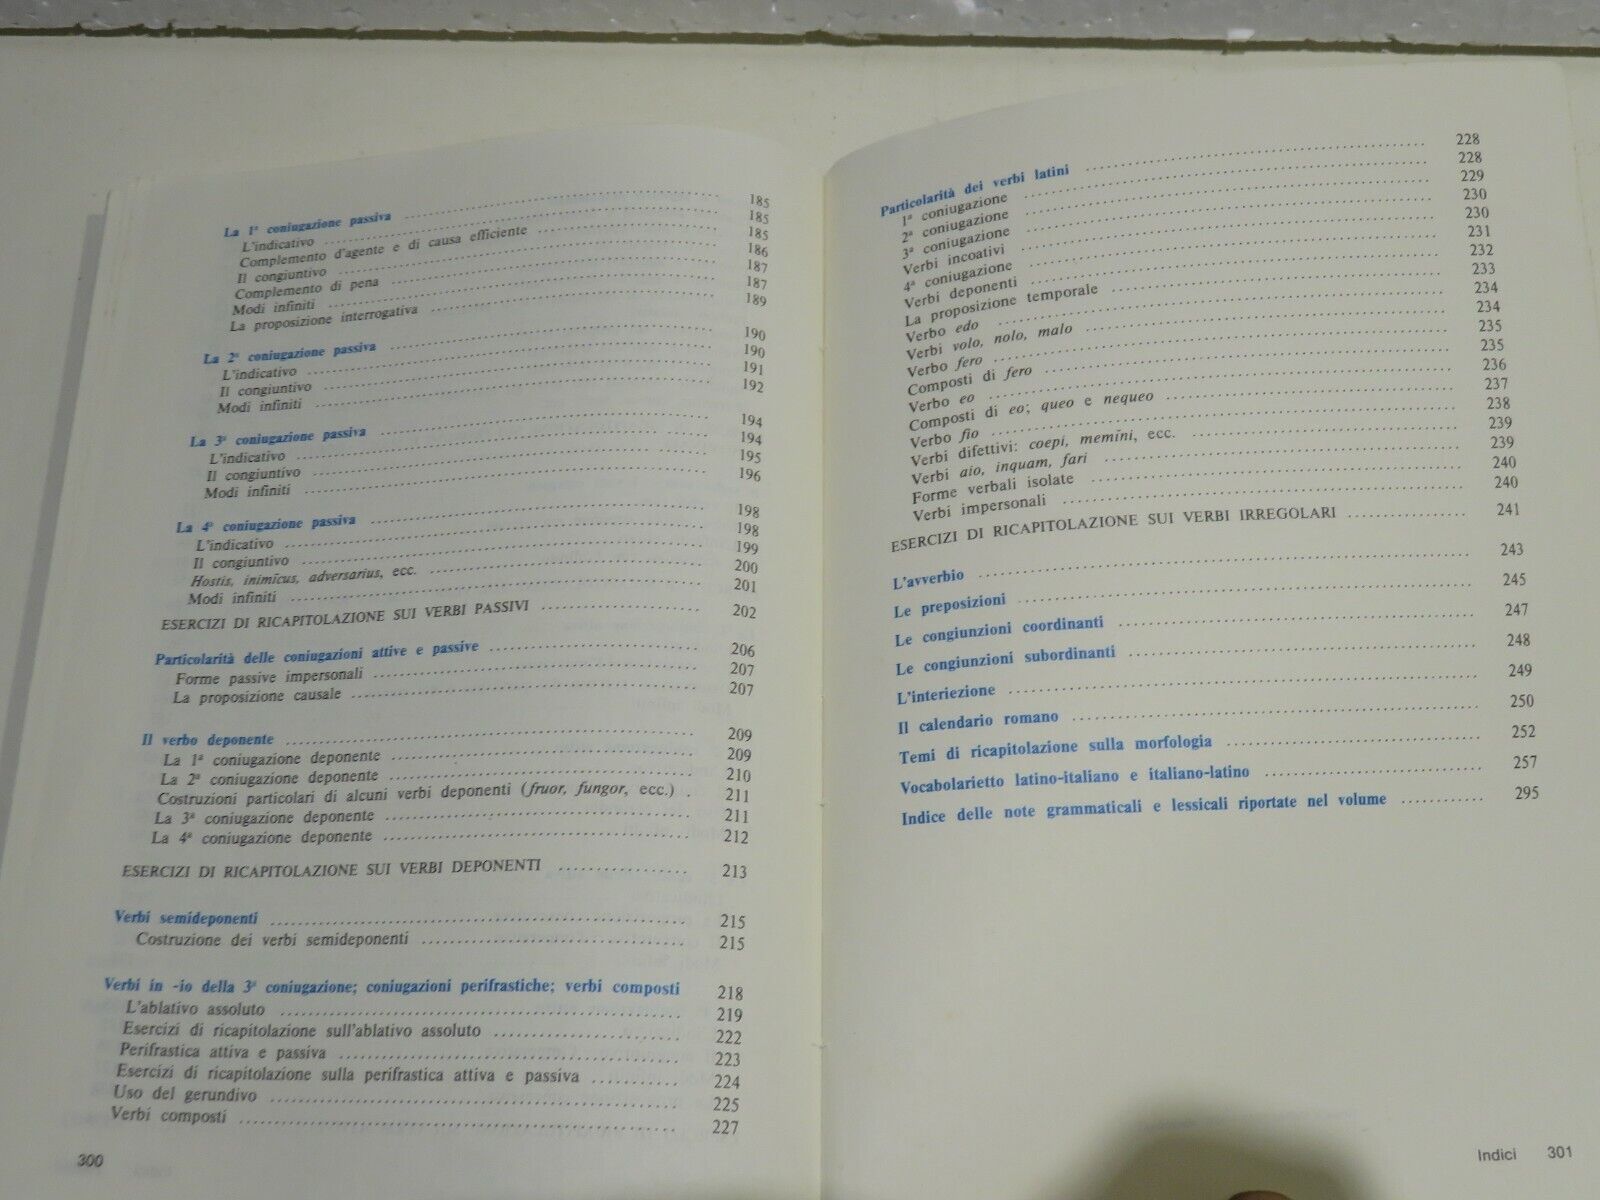 La 1ª coniugazione passiva ........ 185
L'indicativo ........ 185
Complemento d'agente e di causa efficiente ........ 185
Il congiuntivo ........ 186
Complemento di pena ........ 187
Modi infiniti ........ 187
La proposizione interrogativa ........ 189
La 2ª coniugazione passiva ........ 190
L'indicativo ........ 190
Il congiuntivo ........ 191
Modi infiniti ........ 192
La 3ª coniugazione passiva ........ 194
L'indicativo ........ 194
Il congiuntivo ........ 195
Modi infiniti ........ 196
La 4ª coniugazione passiva ........ 198
L'indicativo ........ 198
Il congiuntivo ........ 199
Hostis, inimīcus, adversarius, ecc. ........ 200
Modi infiniti ........ 201
ESERCIZI DI RICAPITOLAZIONE SUI VERBI PASSIVI ........ 202
Particolarità delle coniugazioni attive e passive ........ 206
Forme passive impersonali ........ 207
La proposizione causale ........ 207
Il verbo deponente ........ 209
La 1ª coniugazione deponente ........ 209
La 2ª coniugazione deponente ........ 210
Costruzioni particolari di alcuni verbi deponenti (fruor, fungor, ecc.) . 211
La 3ª coniugazione deponente ........ 211
La 4ª coniugazione deponente ........ 212
ESERCIZI DI RICAPITOLAZIONE SUI VERBI DEPONENTI ........ 213
Verbi semideponenti ........ 215
Costruzione dei verbi semideponenti ........ 215
Verbi in -io della 3ª coniugazione; coniugazioni perifrastiche; verbi composti 218
L'ablativo assoluto ........ 219
Esercizi di ricapitolazione sull'ablativo assoluto ........ 222
Perifrastica attiva e passiva ........ 223
Esercizi di ricapitolazione sulla perifrastica attiva e passiva ........ 224
Uso del gerundivo ........ 225
Verbi composti ........ 227
300
Particolarità dei verbi latini ........ 228
1ª coniugazione ........ 228
2ª coniugazione ........ 229
3ª coniugazione ........ 230
Verbi incoativi ........ 230
4ª coniugazione ........ 231
Verbi deponenti ........ 232
La proposizione temporale ........ 233
Verbo edo ........ 234
Verbi volo, nolo, malo ........ 234
Verbo fero ........ 235
Composti di fero ........ 235
Verbo eo ........ 236
Composti di eo; queo e nequeo ........ 237
Verbo fio ........ 238
Verbi difettivi: coepi, memĭni, ecc. ........ 239
Verbi aio, inquam, fari ........ 239
Forme verbali isolate ........ 240
Verbi impersonali ........ 240
ESERCIZI DI RICAPITOLAZIONE SUI VERBI IRREGOLARI ........ 241
L'avverbio ........ 243
Le preposizioni ........ 245
Le congiunzioni coordinanti ........ 247
Le congiunzioni subordinanti ........ 248
L'interiezione ........ 249
Il calendario romano ........ 250
Temi di ricapitolazione sulla morfologia ........ 252
Vocabolarietto latino-italiano e italiano-latino ........ 257
Indice delle note grammaticali e lessicali riportate nel volume ........ 295
Indici 301